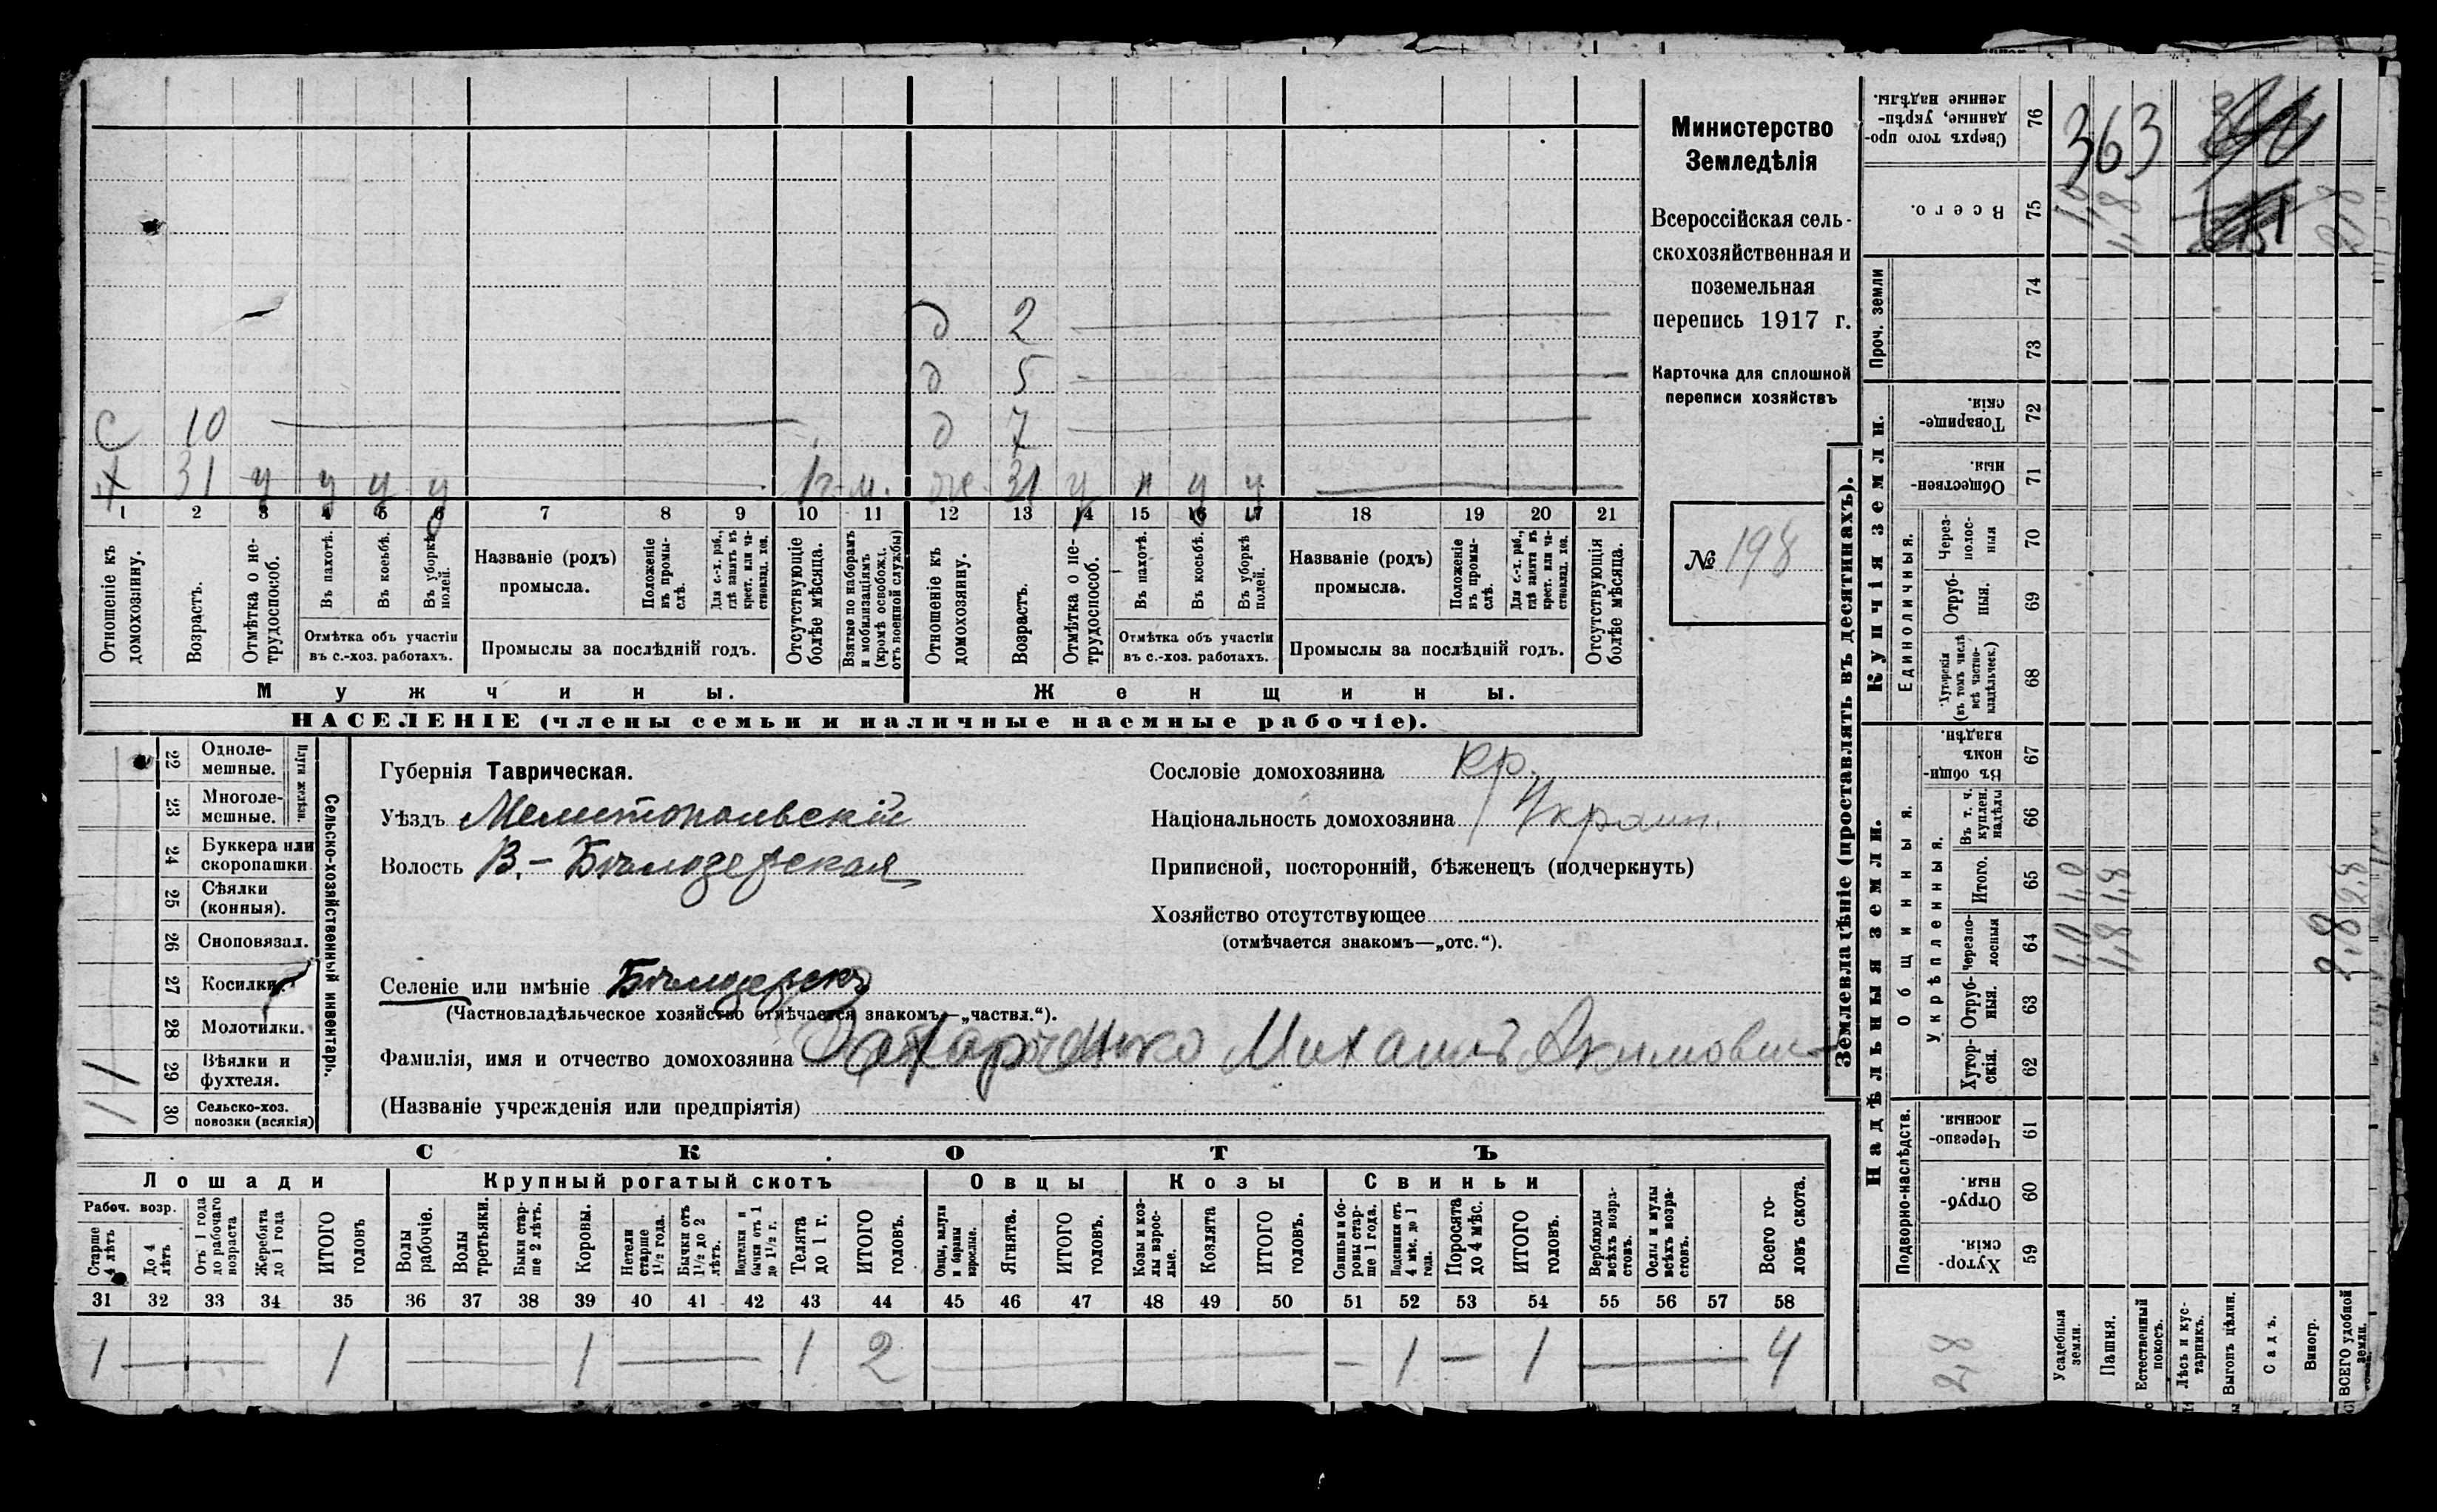 Министерство
Земледѣлія
Всероссійская сель-
скохозяйственная и
поземельная
перепись 1917 г.
Карточка для сплошной
переписи хозяйствъ
№ 198
д 2
д 5
С 10 д 7
х 31 у у у у 1 г. м. ж. 31 у п у у
1 2 3 4 5 6 7 8 9 10 11 12 13 14 15 16 17 18 19 20 21
Отношеніе къ домохозяину.
Возрастъ.
Отмѣтка о не-трудоспособ.
Въ пахотѣ.
Въ косьбѣ.
Въ уборкѣ полей.
Отмѣтка объ участіи
въ с.-хоз. работахъ.
Названіе (родъ)
промысла.
Положеніе въ промы-слѣ.
Для с.-х. раб., гдѣ занятъ въ крест. или ча-стновлад. хоз.
Промыслы за послѣдній годъ.
Отсутствующіе болѣе мѣсяца.
Взятые по наборамъ и мобилизаціямъ (кромѣ освобожд. отъ военной службы)
Отношеніе къ домохозяину.
Возрастъ.
Отмѣтка о не-трудоспособ.
Въ пахотѣ.
Въ косьбѣ.
Въ уборкѣ полей.
Отмѣтка объ участіи
въ с.-хоз. работахъ.
Названіе (родъ)
промысла.
Положеніе въ промы-слѣ.
Для с.-х. раб., гдѣ занятъ въ крест. или ча-стновлад. хоз.
Промыслы за послѣдній годъ.
Отсутствующія болѣе мѣсяца.
Мужчины. Женщины.
НАСЕЛЕНІЕ (члены семьи и наличные наемные рабочіе).
Сельско-хозяйственный инвентарь.
Плуги желѣзн.
22 Одноле-мешные.
23 Многоле-мешные.
24 Буккера или скоропашки
25 Сѣялки (конныя).
26 Сноповязал.
27 Косилки.
28 Молотилки.
29 Вѣялки и фухтеля. 1
30 Сельско-хоз. повозки (всякія) 1
Губернія Таврическая.
Уѣздъ Мелитопольскій
Волость В.-Бѣлозерская
Селеніе или имѣніе Бѣлозерск
(Частновладѣльческое хозяйство отмѣчается знакомъ—„частвл.“).
Фамилія, имя и отчество домохозяина Михаилъ Акимович
(Названіе учрежденія или предпріятія)
Сословіе домохозяина кр.
Національность домохозяина Украин.
Приписной, посторонній, бѣженецъ (подчеркнуть)
Хозяйство отсутствующее
(отмѣчается знакомъ—„отс.“).
СКОТЪ
Лошади Крупный рогатый скотъ Овцы Козы Свиньи
Рабоч. возр.
Старше 4 лѣтъ
До 4 лѣтъ
Отъ 1 года до рабочаго возраста
Жеребята до 1 года
ИТОГО головъ
Волы рабочіе.
Волы третьяки.
Быки стар-ше 2 лѣтъ.
Коровы.
Нетели старше 1½ года.
Бычки отъ 1½ до 2 лѣтъ.
Подтелки и бычки отъ 1 до 1½ г.
Телята до 1 г.
ИТОГО головъ.
Овцы, валухи и бараны взрослые.
Ягнята.
ИТОГО головъ.
Козы и коз-лы взрос-лые.
Козлята
ИТОГО головъ.
Свиньи и бо-ровы стар-ше 1 года.
Подсвинки отъ 4 мѣс. до 1 года.
Поросята до 4 мѣс.
ИТОГО головъ.
Верблюды всѣхъ возра-стовъ.
Ослы и мулы всѣхъ возра-стовъ.
Всего го-ловъ скота.
31 32 33 34 35 36 37 38 39 40 41 42 43 44 45 46 47 48 49 50 51 52 53 54 55 56 57 58
1 1 1 1 2 1 1 4
Землевладѣніе (проставлять въ десятинахъ).
Надѣльныя земли.
Купчія земли.
Проч. земли
Подворно-наслѣдств.
Общинныя.
Укрѣпленныя.
Единоличныя.
Сверхъ того про-данные, укрѣп-ленные надѣлы. 76
Всего. 75
74
73
Товарище-скія. 72
Обществен-ныя. 71
Через-полос-ныя 70
Отруб-ныя. 69
Хуторскія (въ томъ числѣ всѣ частно-владѣльческ.) 68
Въ общин-номъ владѣн. 67
Въ т. ч. куплен. надѣлы 66
Итого. 65
Черезпо-лосныя 64
Отруб-ныя. 63
Хутор-скія. 62
Черезпо-лосныя 61
Отруб-ныя. 60
Хутор-скія 59
Усадебныя земли.
Пашня.
Естественный покосъ.
Лѣсъ и кус-тарникъ.
Выгонъ цѣлин.
Садъ.
Виногр.
ВСЕГО удобной земли.
363
1,0 1,0
1,8 1,8
2,8 2,8
28